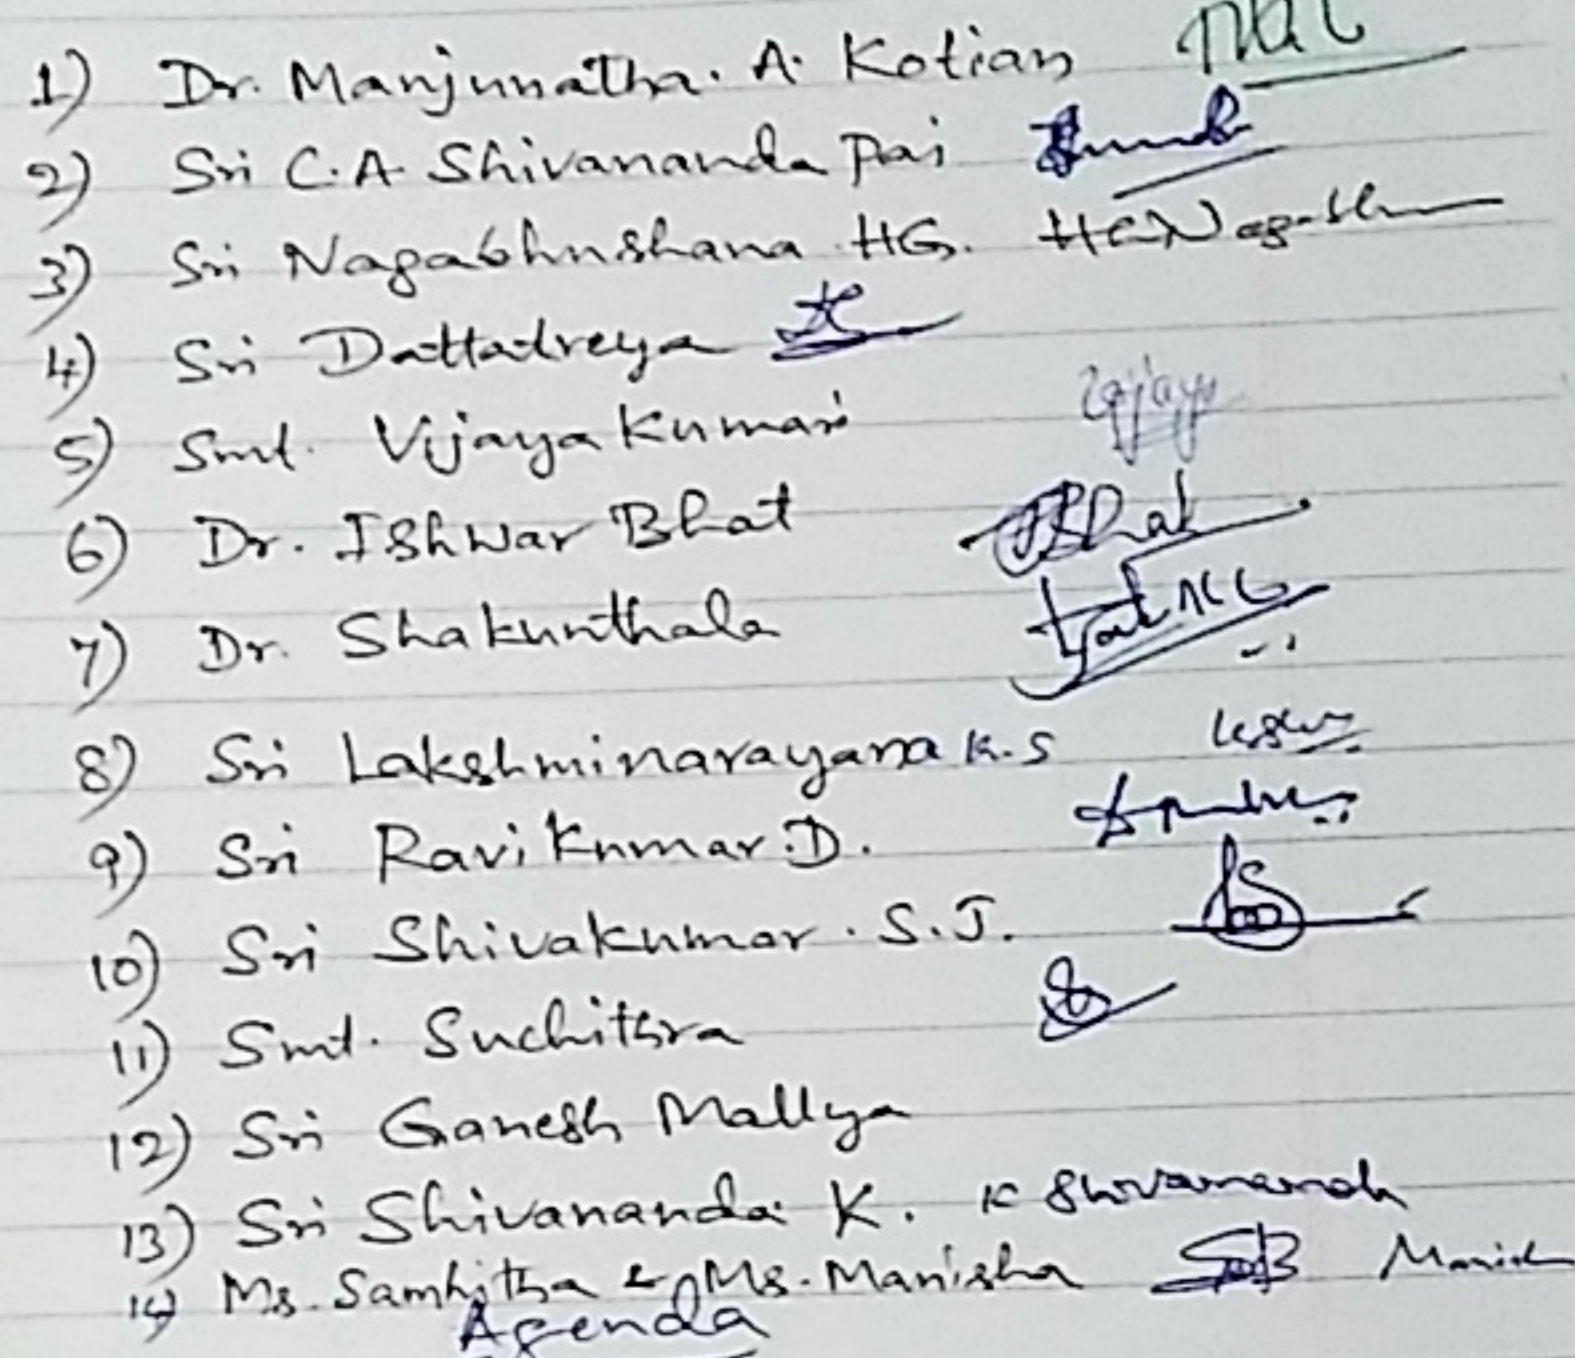 1) Dr. Manjunatha. A. Kotian
2) Sri C.A. Shivananda Pai
3) Sri Nagabhushana HG. HGNagabh
4) Sri Dattatreya
5) Smt. Vijaya Kumari
6) Dr. Ishwar Bhat Bhat
7) Dr. Shakunthala
8) Sri Lakshminarayana K.S
9) Sri Ravi Kumar.D.
10) Sri Shivakumar. S.J.
11) Smt. Suchithra
12) Sri Ganesh Mallya
13) Sri Shivananda K. K Shivananda
14) Ms. Samhitha & Ms. Manisha SB Manish
Agenda